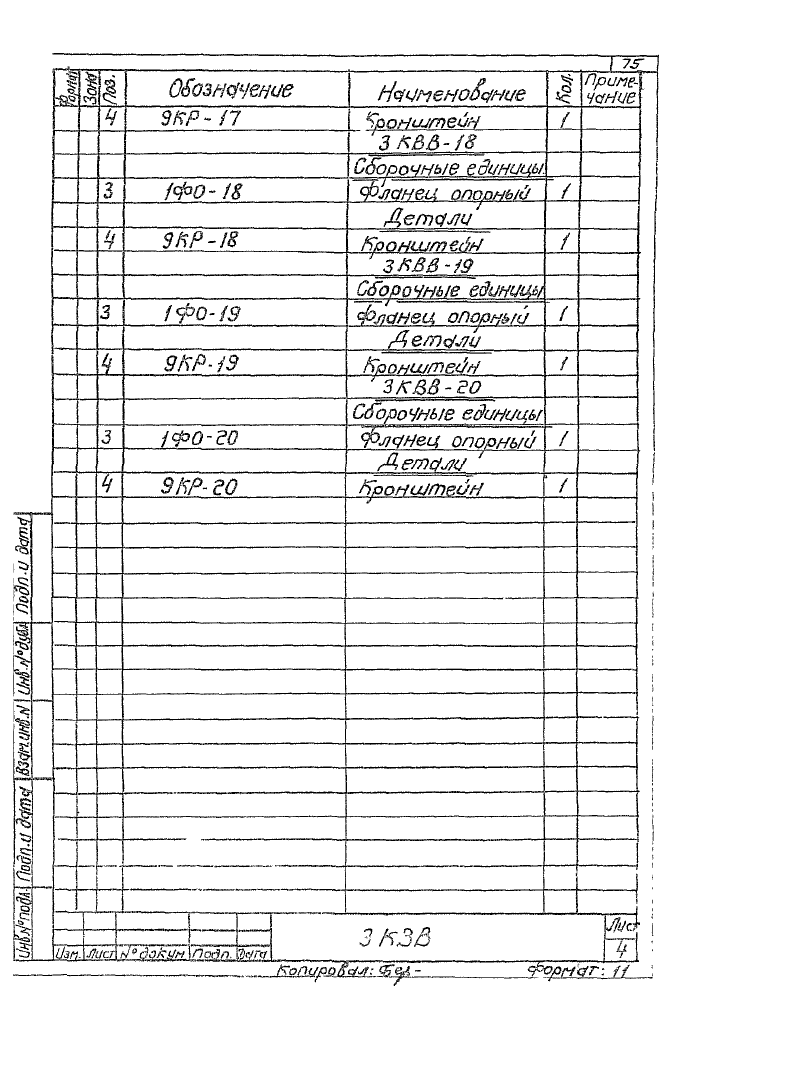 75
Формат Зона Поз. Обозначение Наименование Кол. Приме-
чание
4 9КР-17 Кронштейн 1
3 КВВ-18
Сборочные единицы
3 1ФО-18 Фланец опорный 1
Детали
4 9КР-18 Кронштейн 1
3КВВ-19
Сборочные единицы
3 1ФО-19 Фланец опорный 1
Детали
4 9КР-19 Кронштейн 1
3КВВ-20
Сборочные единицы
3 1ФО-20 Фланец опорный 1
Детали
4 9КР-20 Кронштейн 1
Подп. и дата
Инв. N° дубл.
Взам. инв. N
Подп. и дата
Инв. N° подл.
Изм. Лист N° докум. Подп. Дата
3 КЗВ
Лист
4
Копировал:
Формат: 11